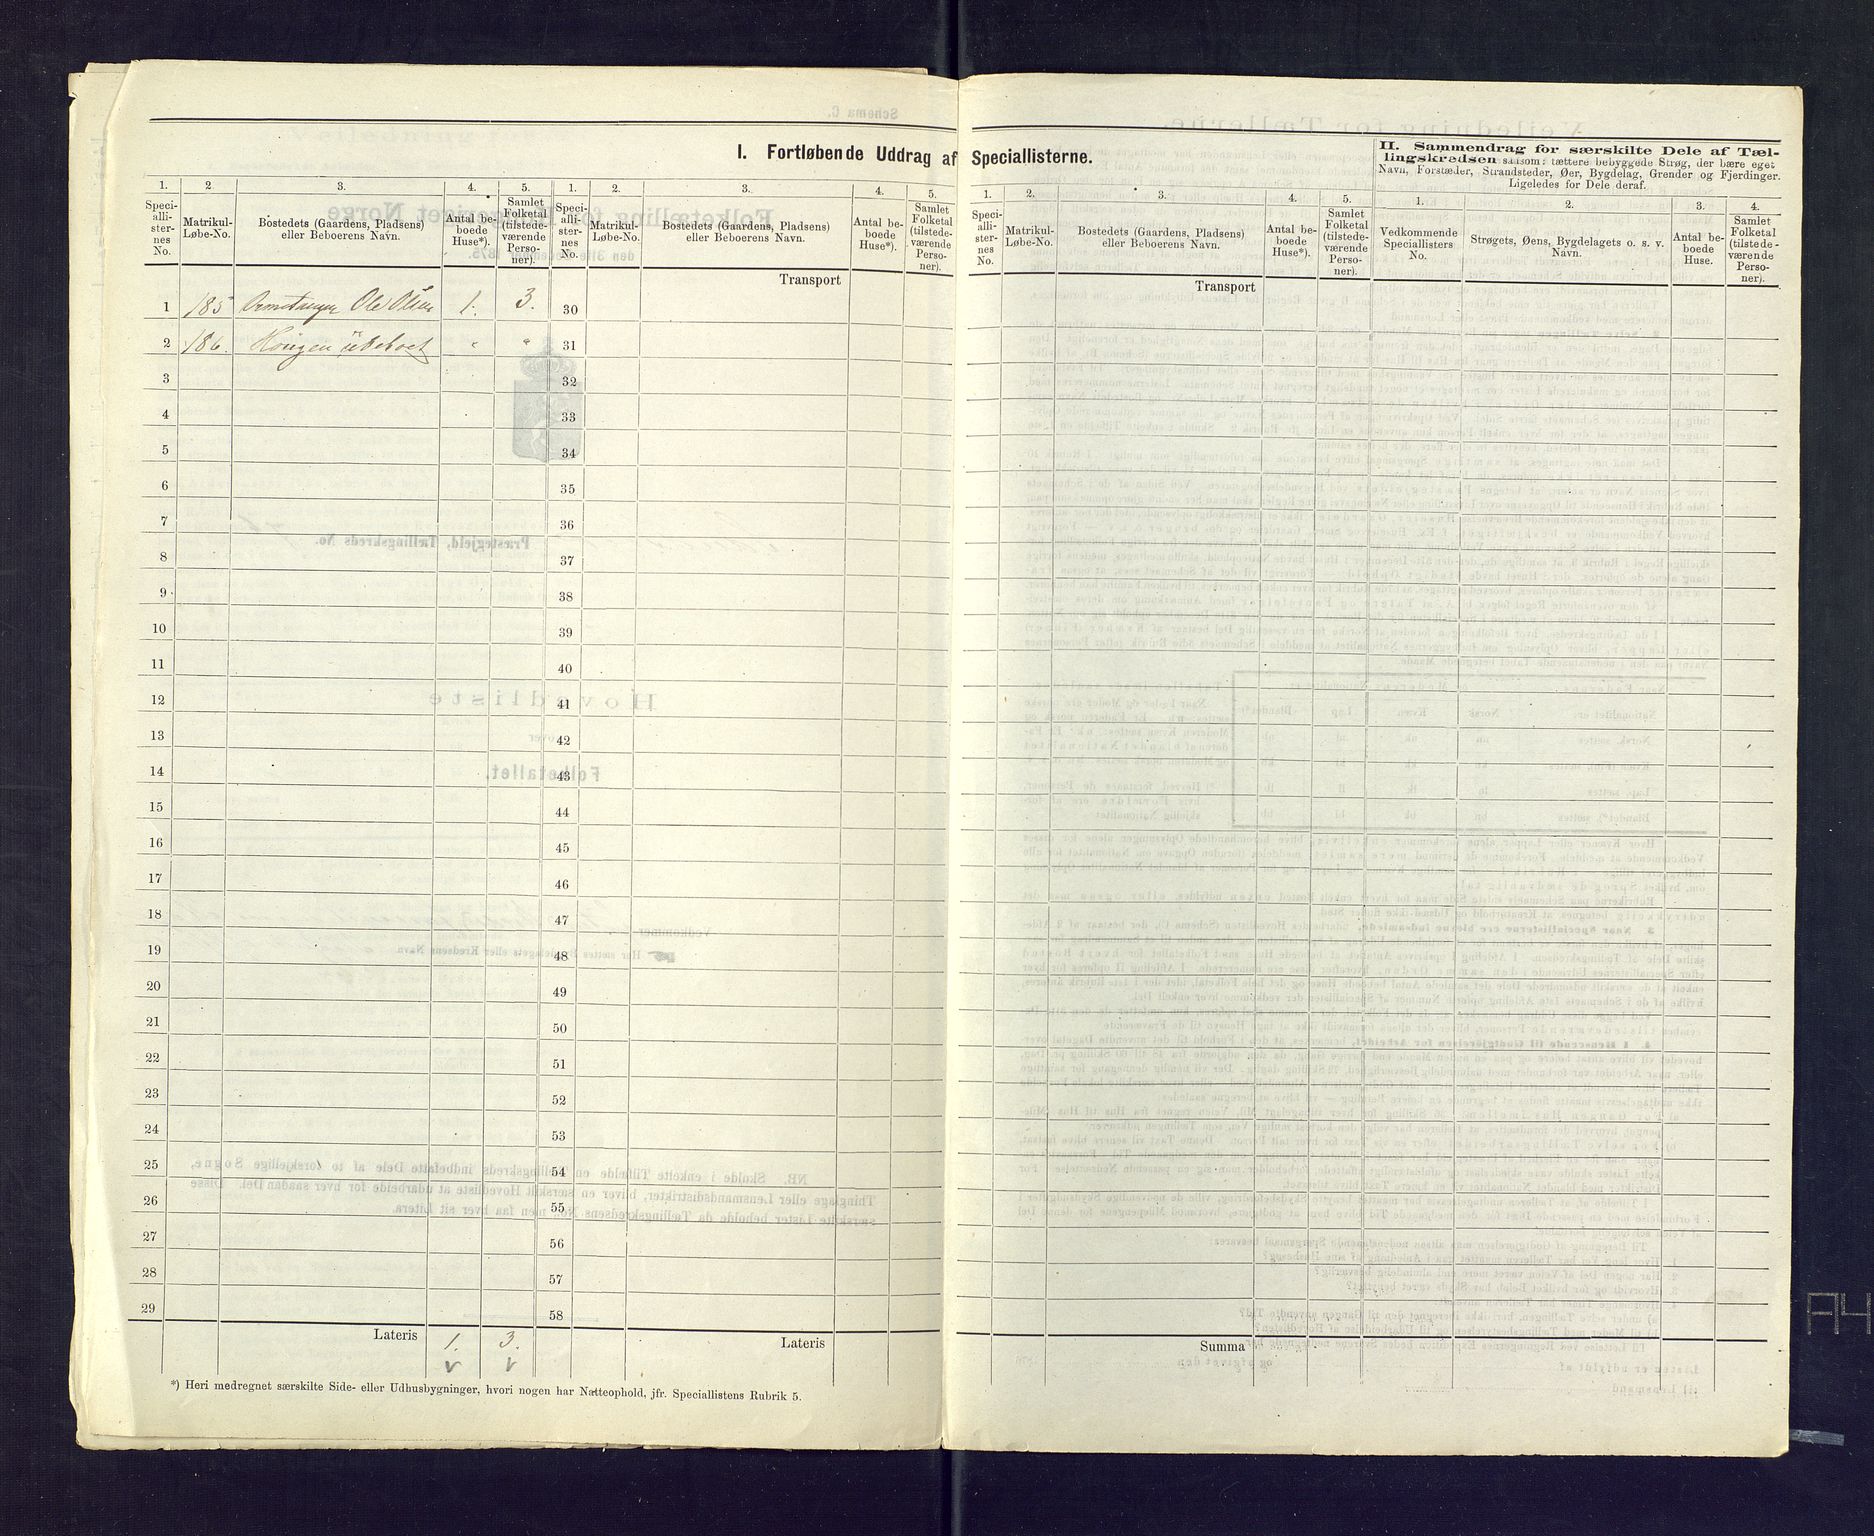 I. Fortløbende Uddrag af Speciallisterne.
II. Sammendrag for særskilte Dele af Tæl-
lingskredsen saasom: tættere bebyggede Strøg, der bære eget
Navn, Forstæder, Strandsteder, Øer, Bygdelag, Grender og Fjerdinger.
Ligeledes for Dele deraf.
1. 2. 3. 4. 5. 1. 2. 3. 4. 5. 1. 2. 3. 4. 5. 1. 2. 3. 4.
Speci-
alli-
ster-
nes
No.
Matrikul-
Løbe-No.
Bostedets (Gaardens, Pladsens)
eller Beboerens Navn.
Antal be-
boede
Huse*).
Samlet
Folketal
(tilstede-
værende
Perso-
ner).
Speci-
alli-
ster-
nes
No.
Matrikul-
Løbe-No.
Bostedets (Gaardens, Pladsens)
eller Beboerens Navn.
Antal be-
boede
Huse*).
Samlet
Folketal
(tilstede-
værende
Perso-
ner).
Speci-
alli-
ster-
nes
No.
Matrikul-
Løbe-No.
Bostedets (Gaardens, Pladsens)
eller Beboerens Navn.
Antal be-
boede
Huse*).
Samlet
Folketal
(tilstede-
værende
Perso-
ner).
Vedkommende
Speciallisters
No.
Strøgets, Øens, Bygdelagets o. s. v.
Navn.
Antal be-
boede
Huse.
Samlet
Folketal
(tilstede-
værende
Perso-
ner).
Transport
Transport
1 185 Ole Olsen 1. 3. 30
2 186. Haugen ubeboet " " 31
3 32
4 33
5 34
6 35
7 36
8 37
9 38
10 39
11 40
12 41
13 42
14 43
15 44
16 45
17 46
18 47
19 48
20 49
21 50
22 51
23 52
24 53
25 54
26 55
27 56
28 57
29 58
Lateris 1. 3. Lateris
v v
Summa
*) Heri medregnet særskilte Side- eller Udhusbygninger, hvori nogen har Natteophold, jfr. Speciallistens Rubrik 5.